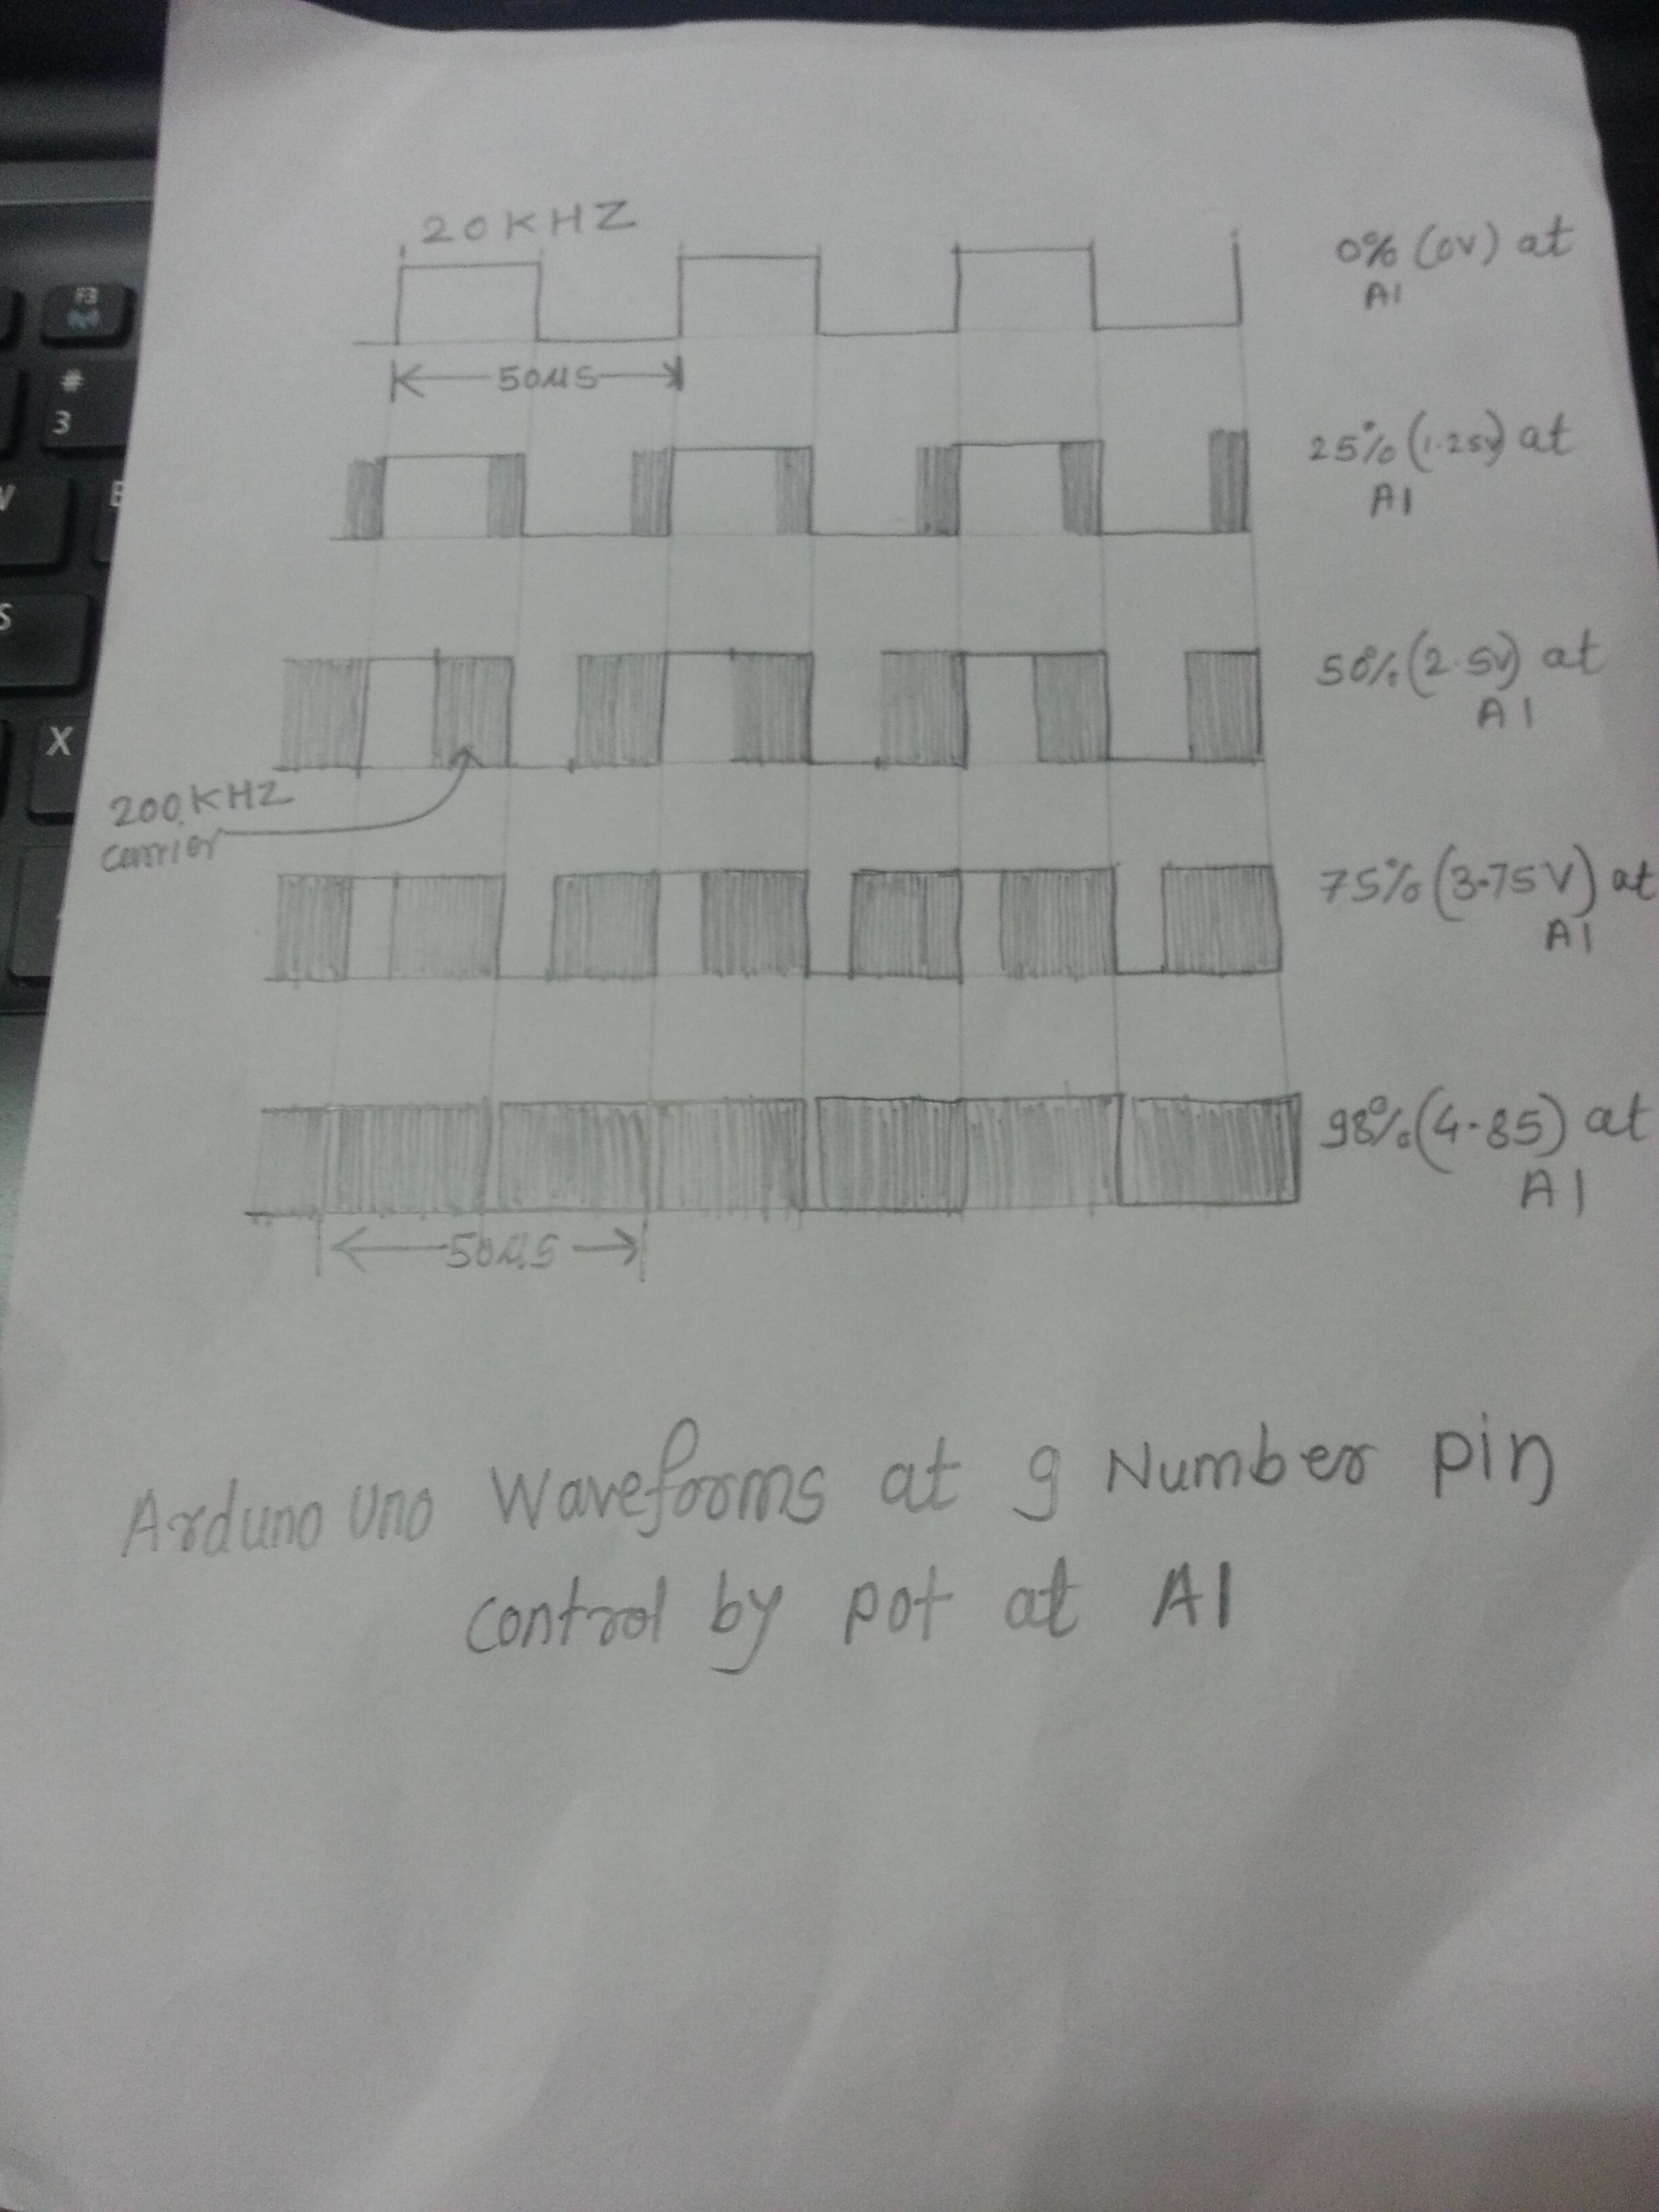 20KHZ
0% (0V) at
A1
50µs
25% (1.25V) at
A1
50% (2.5V) at
A1
200KHZ
carrier
75% (3.75V) at
A1
98% (4.85) at
A1
50µs
Arduno Uno Waveforms at 9 Number pin
control by pot at A1
F3
#
3
X
S